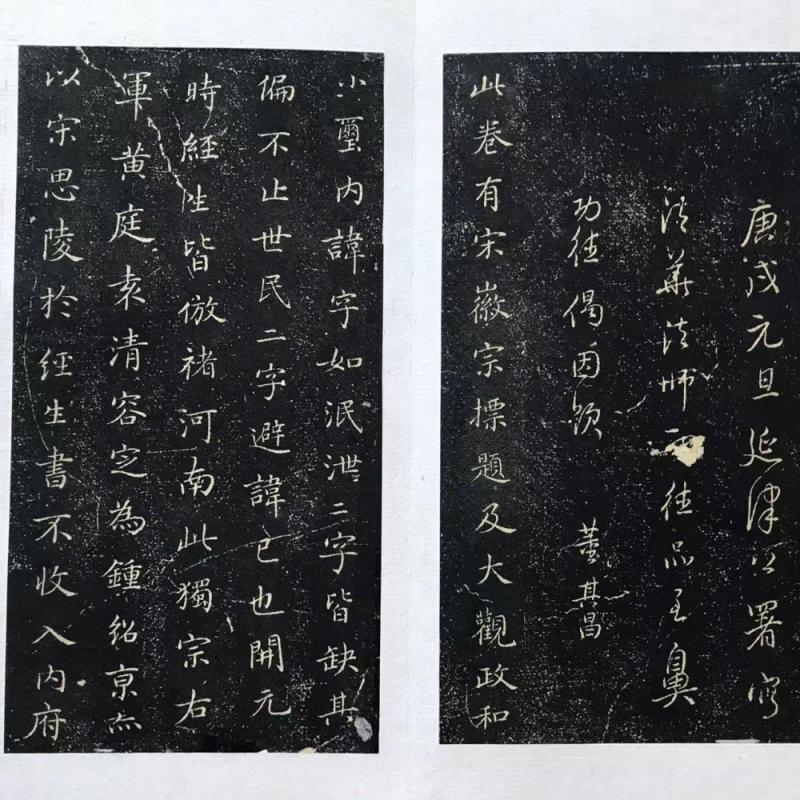 庚戌元旦延津公署寫
法華法師德品至鼻
功德偈因題 董其昌
此卷有宋徽宗標題及大觀政和
小璽內諱字如泯泄二字皆缺其
偏不止世民二字避諱已也開元
時經生皆倣褚河南此獨宗右
軍黃庭袁清容定為鍾紹京亦
以宋思陵於經生書不收入內府